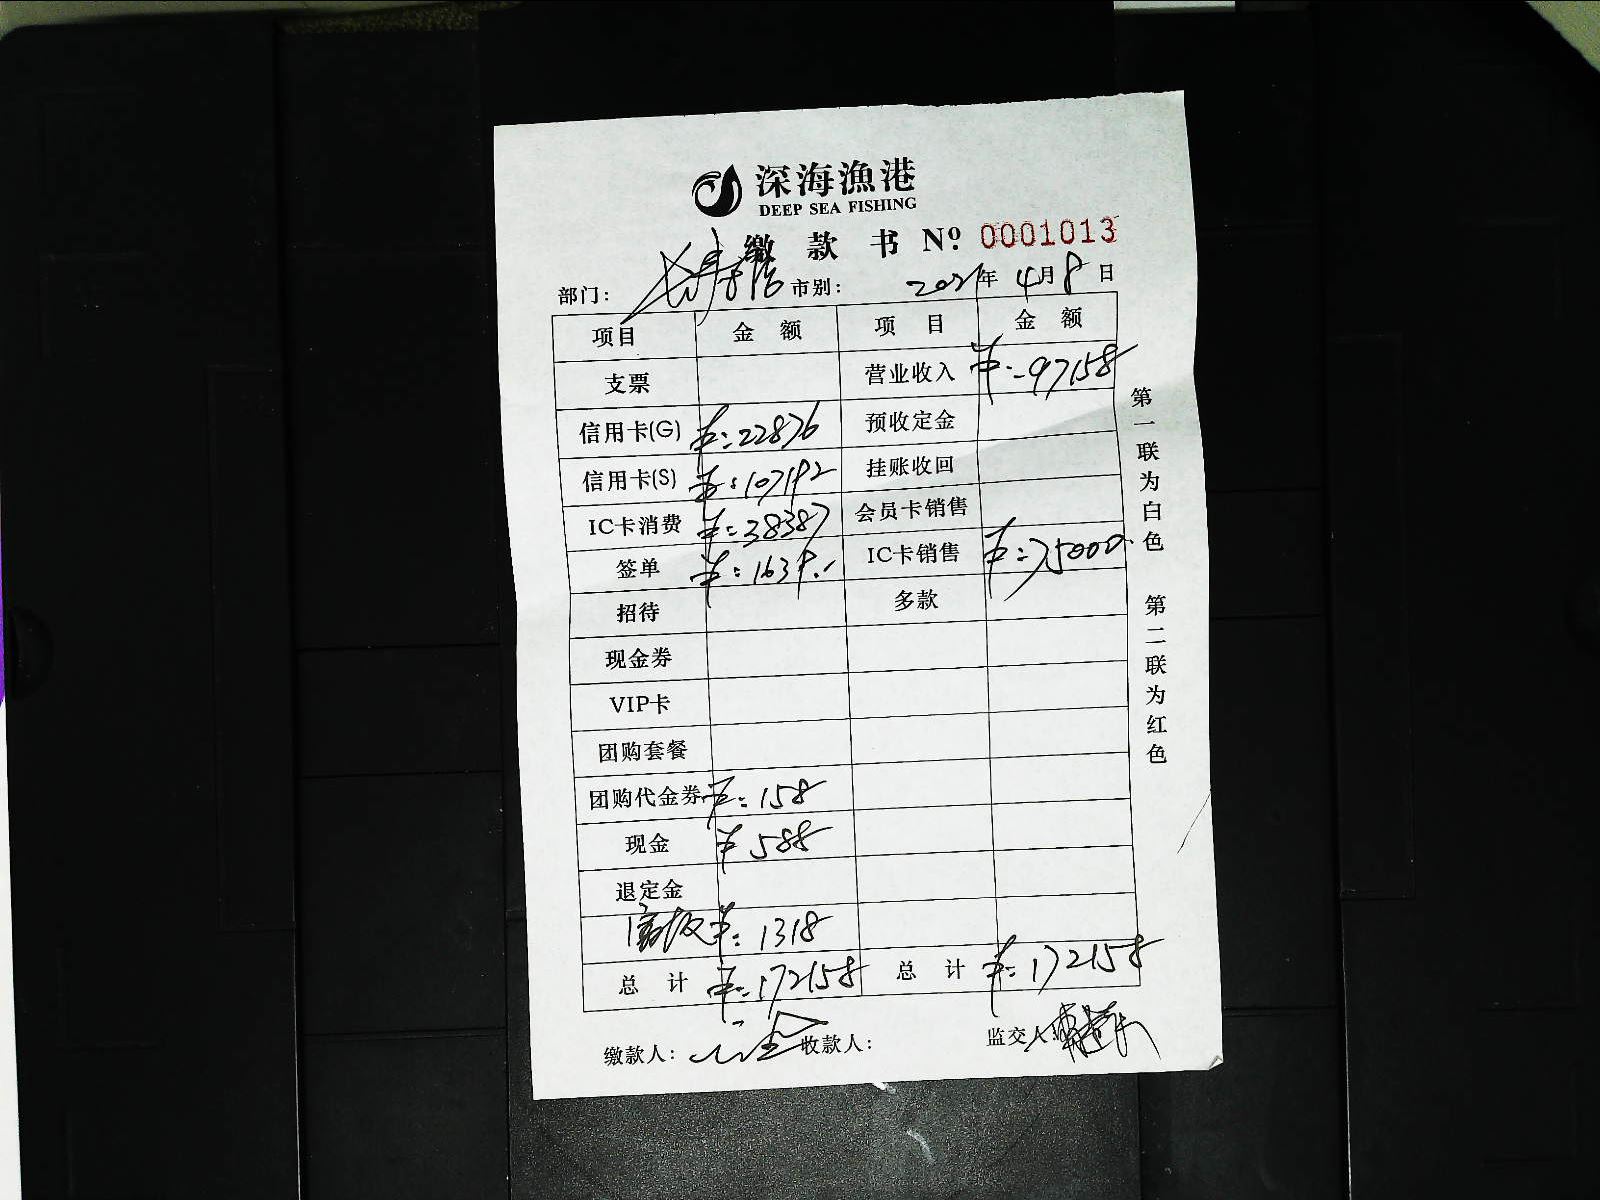 深海漁港
DEEP SEA FISHING
缴 款 书 Nº: 0001013
部门: 市别: 2021年 4月8日
项目 金 额 项 目 金 额
支票 营业收入 ¥:-97158
信用卡(G) ¥:22876 预收定金
信用卡(S) ¥:107192 挂账收回
IC卡消费 ¥:38387 会员卡销售
签单 ¥:1639.- IC卡销售 ¥:75000.
招待 多款
现金券
VIP卡
团购套餐
团购代金券 ¥:158
现金 ¥588
退定金
¥:1318
总 计 ¥:172158 总 计 ¥:172158
缴款人: 收款人: 监交人:
第一联为白色 第二联为红色